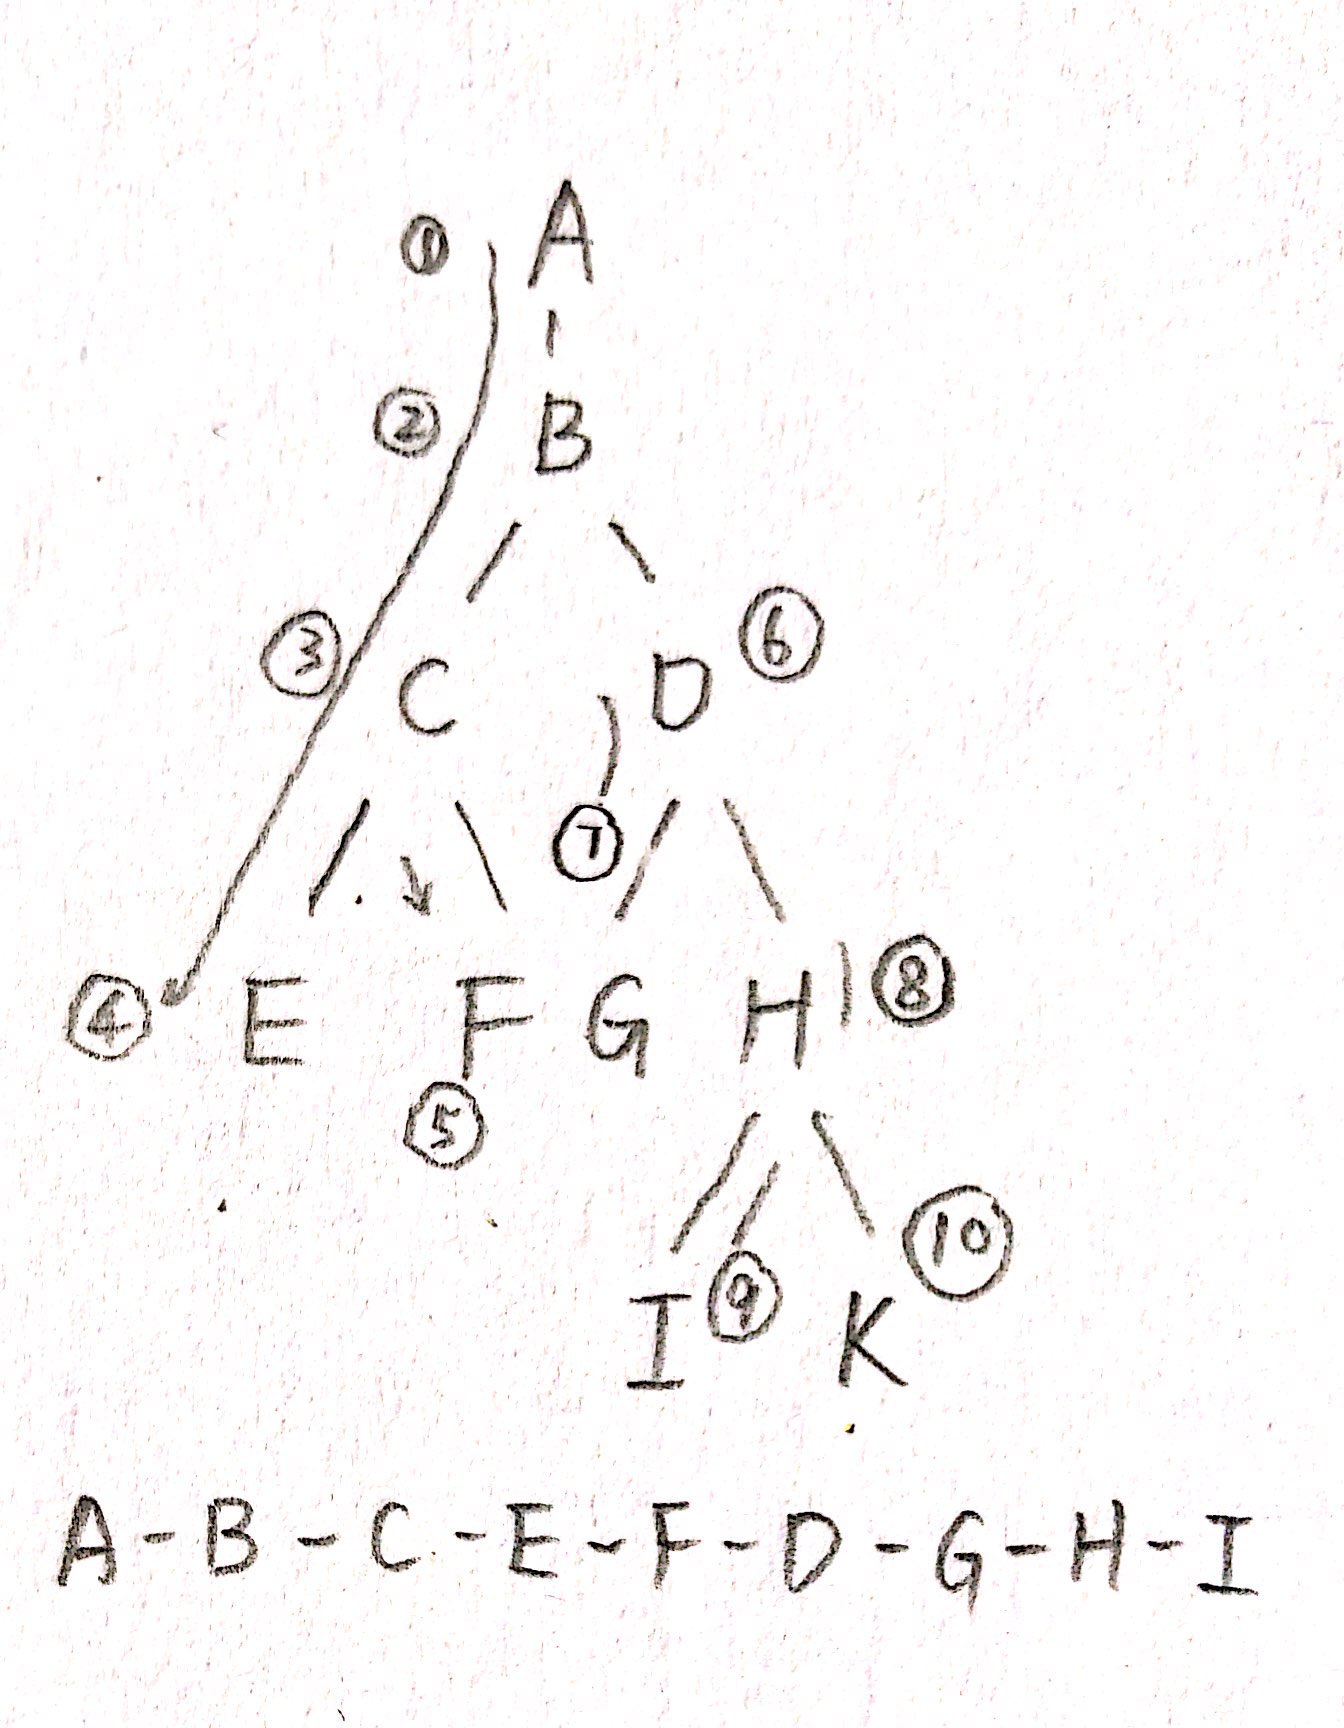 ① A
② B
③ C D ⑥
⑦
④ E F G H ⑧
⑤
I ⑨ K ⑩
A-B-C-E-F-D-G-H-I